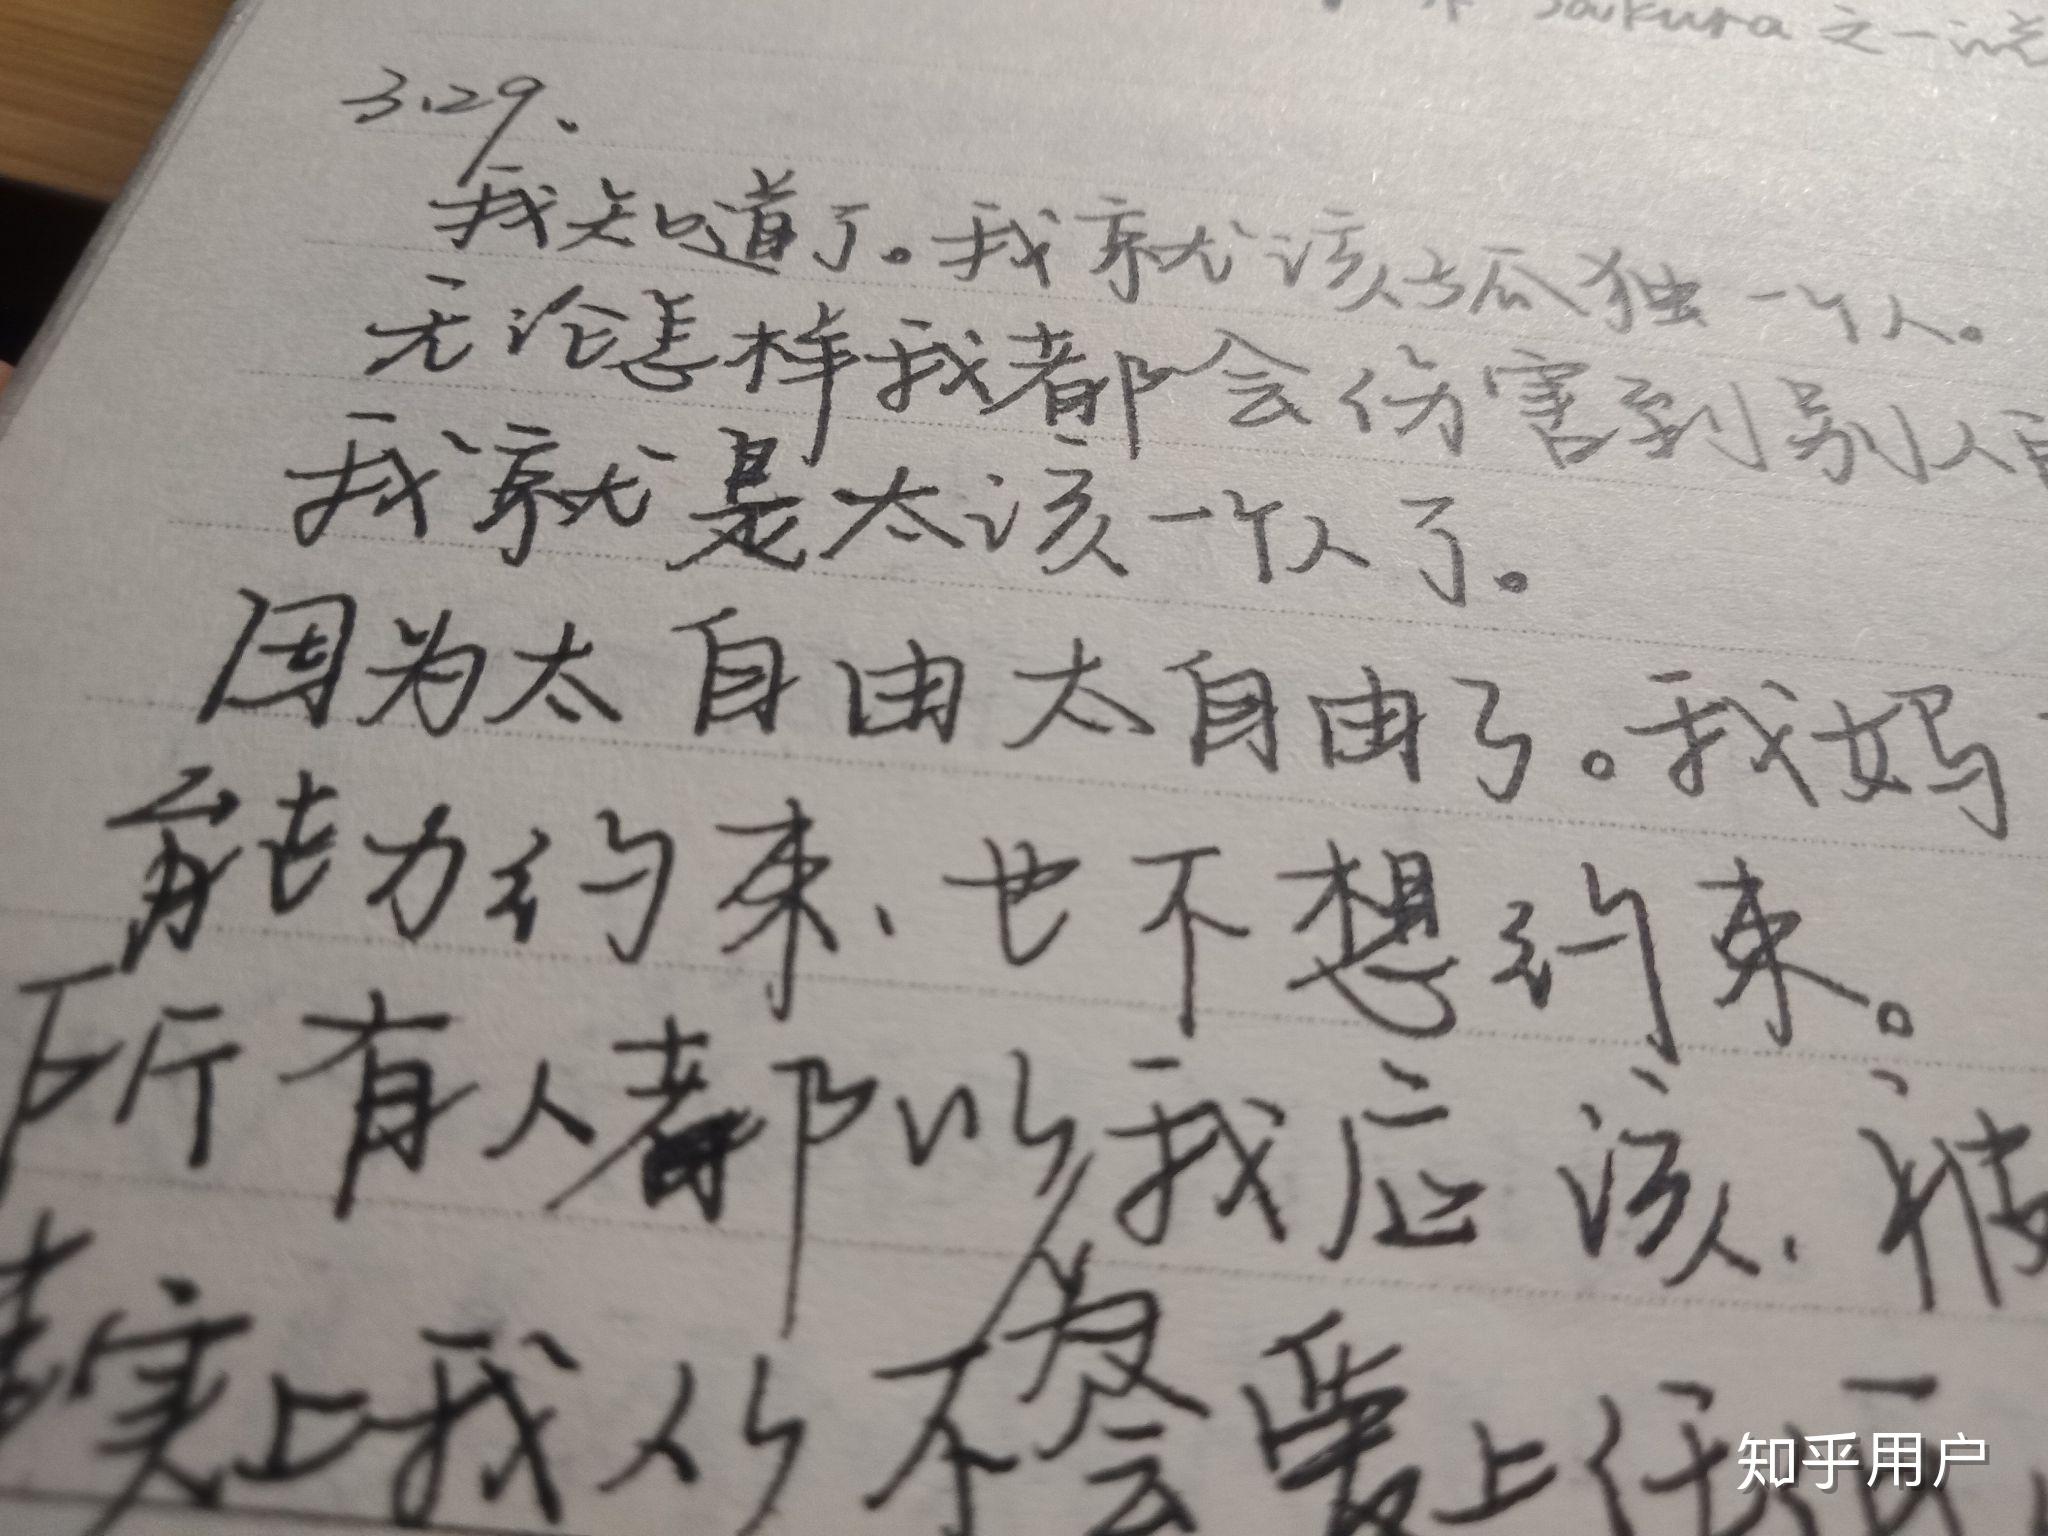 Sakura之一说
3.29.
我知道了。我就该孤独一个人。
无论怎样我都会伤害到别人
我就是太该一个人了。
因为太自由太自由了。我妈
能力约束、也不想约束。
所有人都以为我应该、被
实上我从不会爱上任
知乎用户